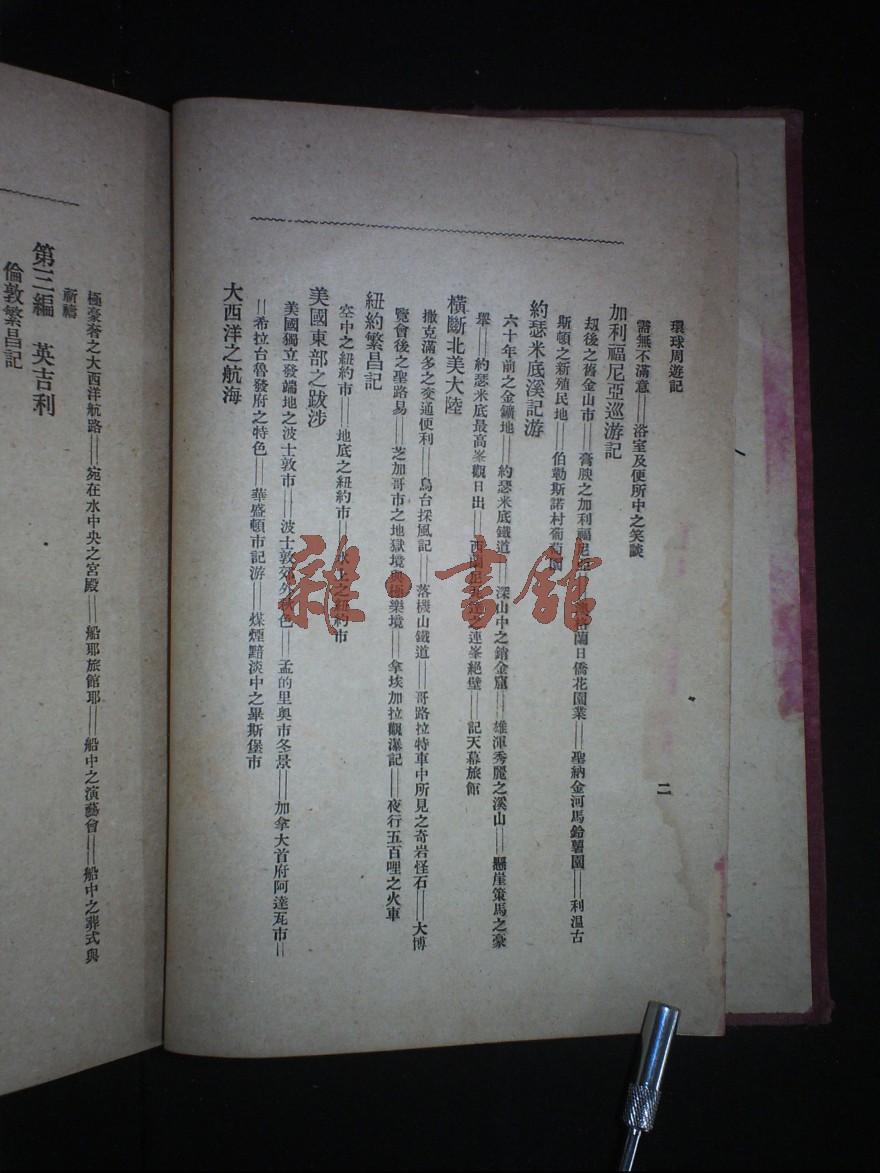 環球周遊記
二
需無不滿意——浴室及便所中之笑談
加利福尼亞巡游記
刼後之舊金山市——膏腴之加利福尼亞 格蘭日僑花園業——聖納金河馬鈴薯園——利温古
斯頓之新殖民地——伯勒斯諾村葡萄園
約瑟米底溪記游
六十年前之金鑛地——約瑟米底鐵道——深山中之銷金窟——雄渾秀麗之溪山——懸崖策馬之豪
舉——約瑟米底最高峯觀日出——西 之連峯絕壁——記天幕旅館
橫斷北美大陸
撒克滿多之交通便利——烏台採風記——落機山鐵道——哥路拉特車中所見之奇岩怪石——大博
覽會後之聖路易——芝加哥市之地獄境與極樂境——拿埃加拉觀瀑記——夜行五百哩之火車
紐約繁昌記
空中之紐約市——地底之紐約市——水上之紐約市
美國東部之跋涉
美國獨立發端地之波士敦市——波士敦郊外秋色——孟的里奧市冬景——加拿大首府阿達瓦市——
——希拉台魯發府之特色——華盛頓市記游——煤煙黯淡中之畢斯堡市
大西洋之航海
極豪奢之大西洋航路——宛在水中央之宮殿——船耶旅館耶——船中之演藝會——船中之葬式與
祈禱
第三編 英吉利
倫敦繁昌記
雜·書館